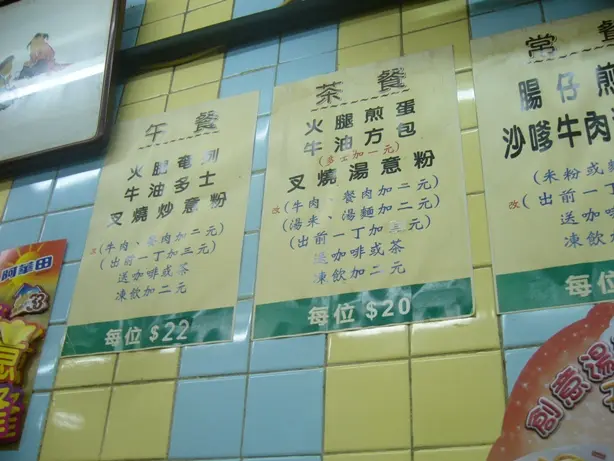 午餐
火腿奄列
牛油多士
叉燒炒意粉
改(牛肉、餐肉加二元)
(出前一丁加三元)
送咖啡或茶
凍飲加二元
每位 $22
茶餐
火腿煎蛋
牛油方包
(多士加一元)
叉燒湯意粉
改(牛肉、餐肉加二元)
(湯米、湯麵加二元)
(出前一丁加三元)
送咖啡或茶
凍飲加二元
每位 $20
常餐
腸仔煎
沙嗲牛肉
(米粉或
改(出前一丁
送咖
凍飲
每位
阿華田
創意湯